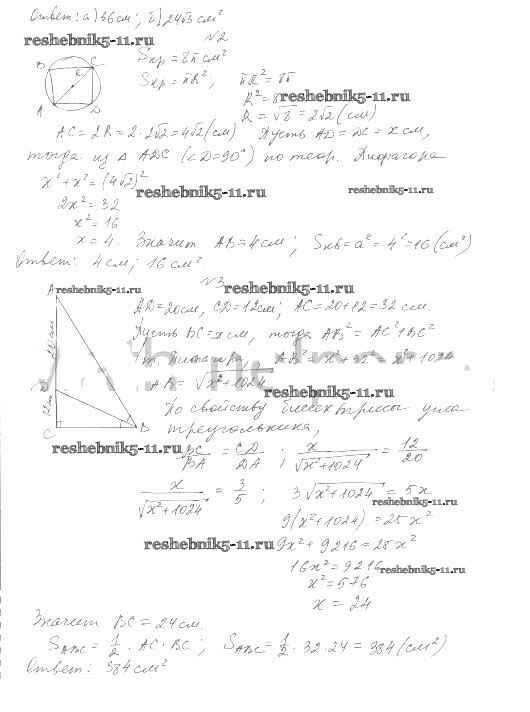 Ответ: а) 36 см; б) 24√3 см²
reshebnik5-11.ru
№2
Sкр = 8π см²
Sкр = πR², πR² = 8π
R² = 8 reshebnik5-11.ru
R = √8 = 2√2 (см)
B C R A D
AC = 2R = 2·2√2 = 4√2 (см) Пусть AD = DC = x см,
тогда из △ ADC (∠D=90°) по теор. Пифагора
x² + x² = (4√2)² reshebnik5-11.ru reshebnik5-11.ru
2x² = 32
x² = 16
x = 4. Значит AB = 4 см; Sкв = a² = 4² = 16 (см²)
Ответ: 4 см; 16 см²
№3
A reshebnik5-11.ru reshebnik5-11.ru
AD = 20 см, CD = 12 см; AC = 20 + 12 = 32 см.
Пусть BC = x см, тогда AB² = AC² + BC²
т. Пифагора, AB² = x² + 32² = x² + 1024
AB = √x² + 1024 reshebnik5-11.ru
По свойству биссектрисы угла
треугольника,
20 см
D
12 см
C B
reshebnik5-11.ru
BC/BA = CD/DA ; x/√x²+1024 = 12/20
x/√x²+1024 = 3/5 ; 3√x²+1024 = 5x
reshebnik5-11.ru
9(x²+1024) = 25x²
reshebnik5-11.ru 9x² + 9216 = 25x²
16x² = 9216 reshebnik5-11.ru
x² = 576
x = 24
Значит BC = 24 см.
SABC = 1/2 · AC · BC ; SABC = 1/2 · 32 · 24 = 384 (см²)
Ответ. 384 см²